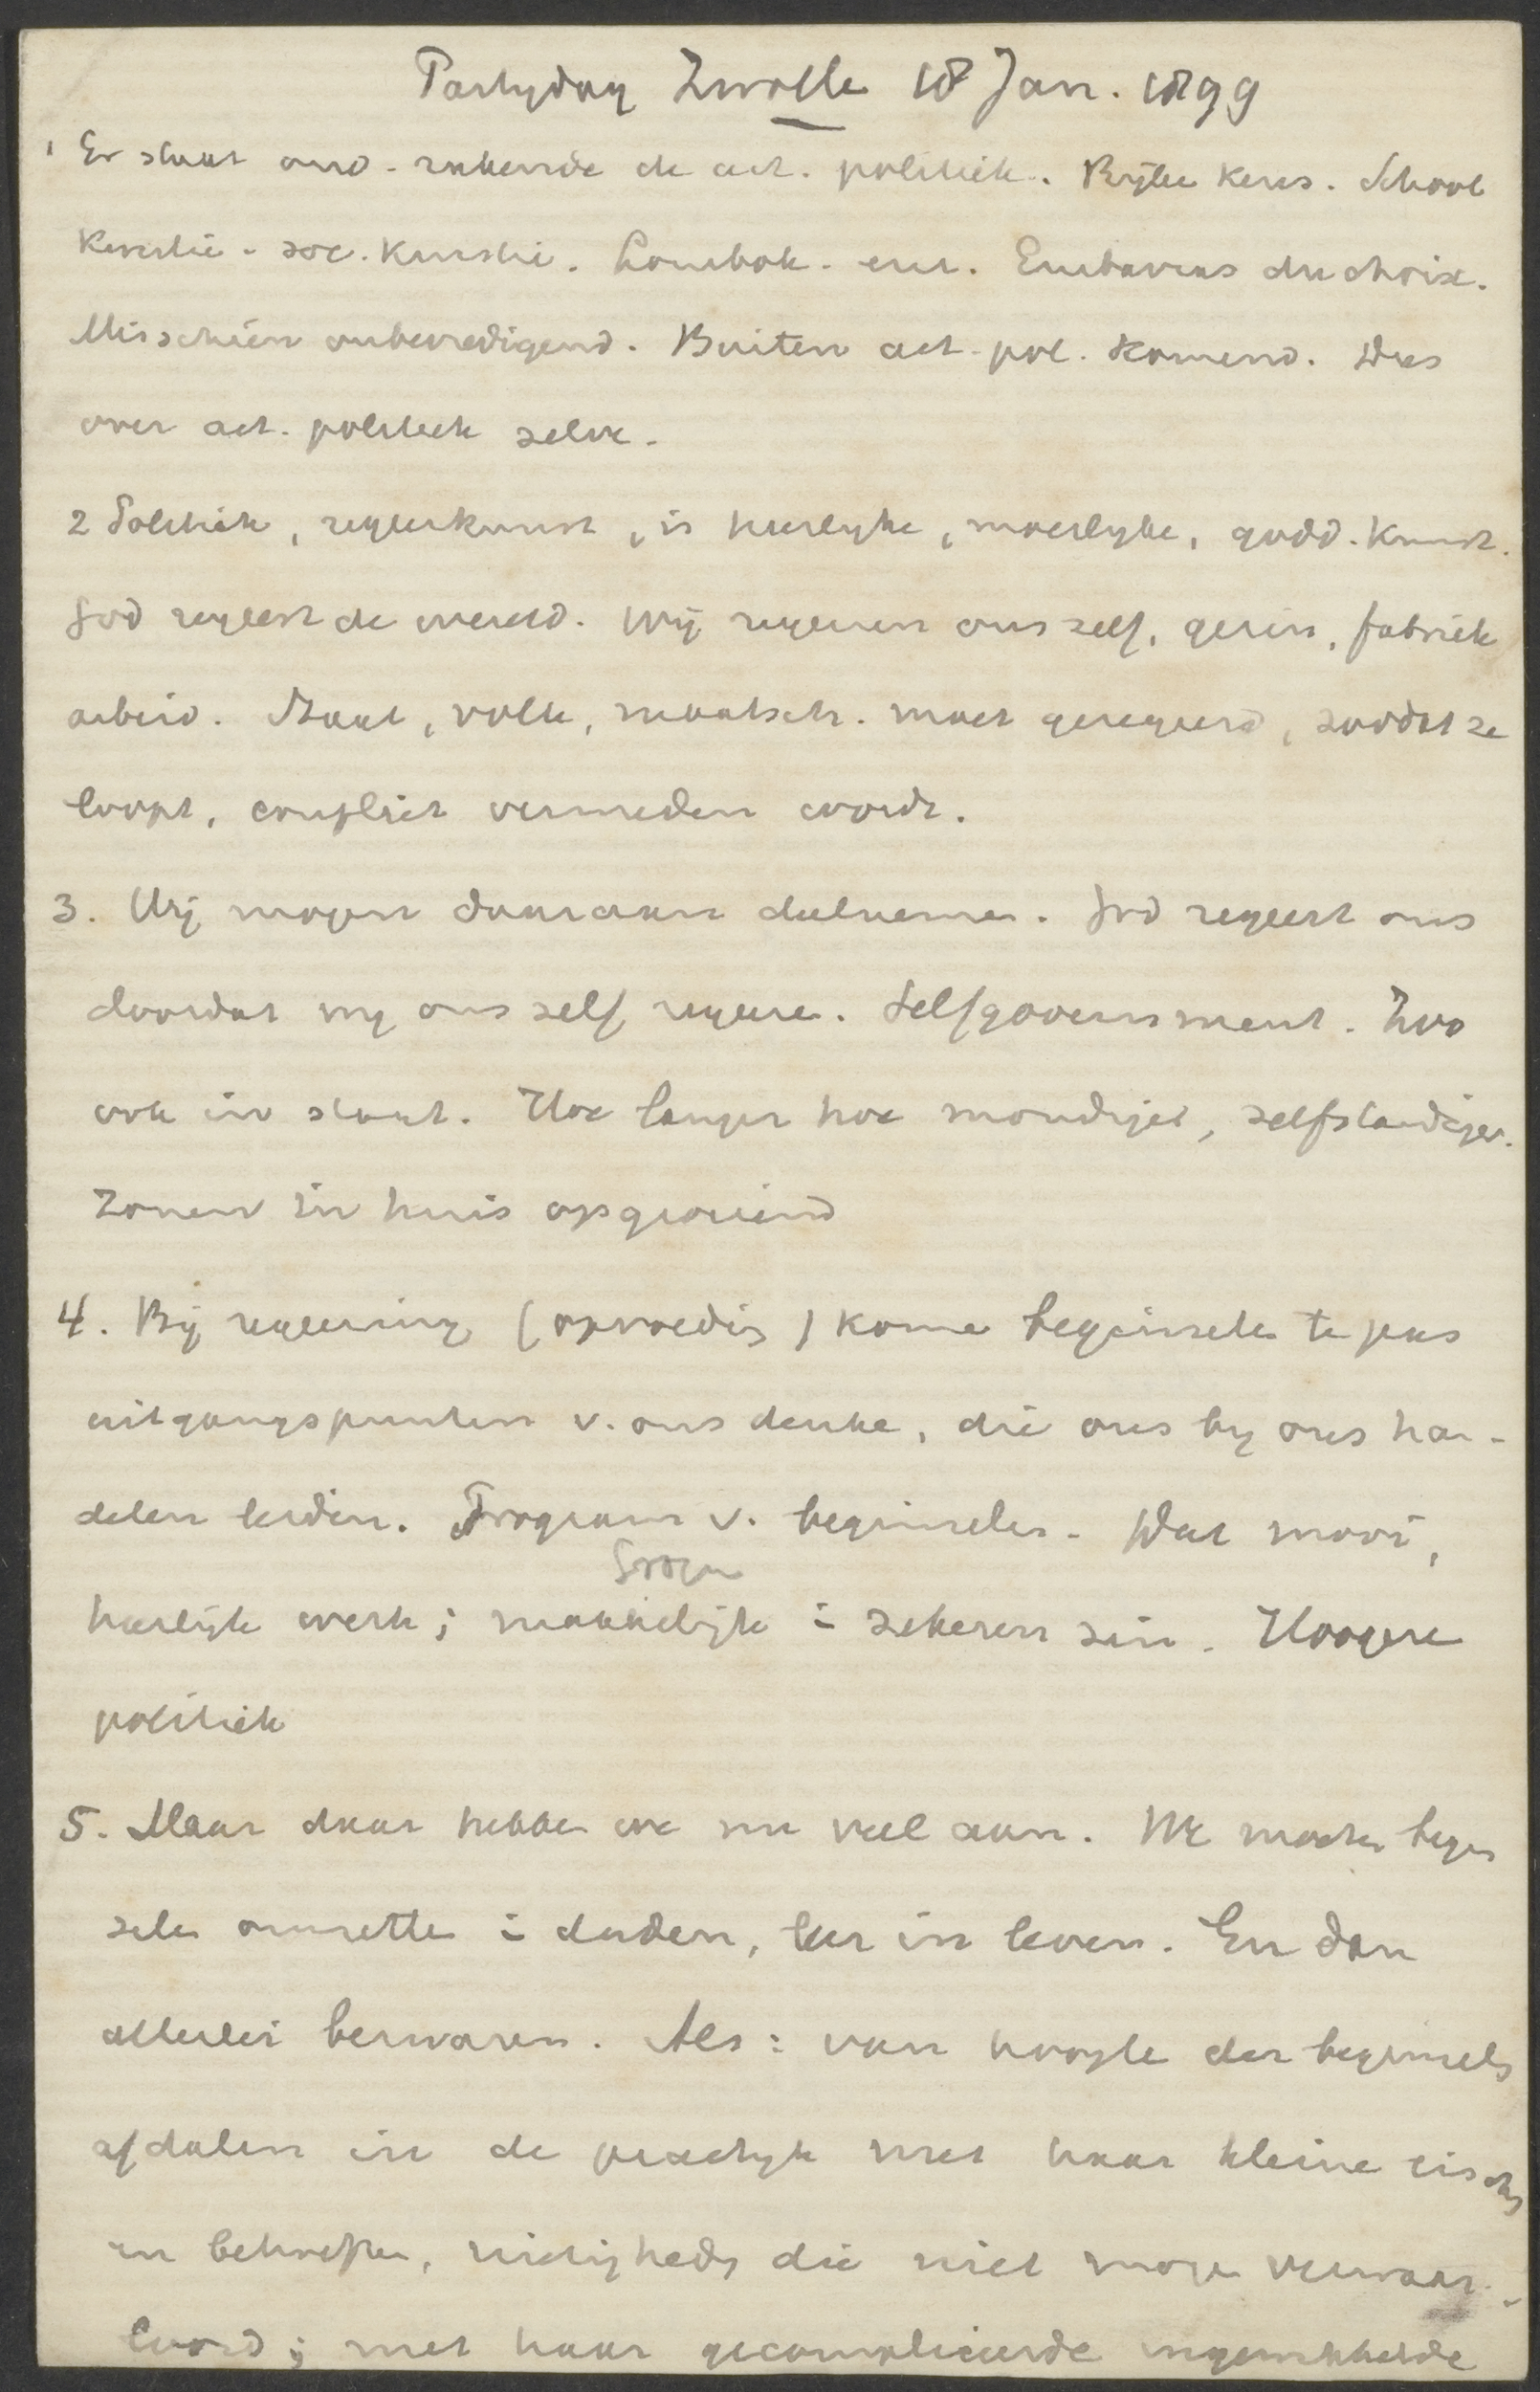 Partijdag Zwolle 18 Jan. 1899
1 Er staat ond. rakende de act. politiek. Rijke keus. School
kwestie - soc. kwestie. Lombok - enz. Embarras du choix.
Misschien onbevredigend. Buiten act. pol. komend. Dus
over act. politiek zelve.
2 Politiek, regeerkunst, is heerlyke, moeilyke, godd. kunst.
God regeert de wereld. Wij regeeren ons zelf, gezin, fabriek
arbeid. Staat, volk, maatsch. moet geregeerd, zoodat ze
loopt, conflict vermeden wordt.
3. Wij mogen daaraan deelneme. God regeert ons
doordat wy ons zelf regeere. Selfgovernment. Zoo
ook in staat. Hoe langer hoe mondiger, zelfstandiger.
Zonen in huis opgroeiend
4. Bij regeering (opvoedig) kome beginsele te pas
uitgangspunten v. ons denke, die ons by ons han-
delen leiden. Program v. beginselen. Wat mooi,
heerlijk werk; makkelijk i zekeren zin. Hoogere
politiek
5. Maar daar hebbe we nu veel aan. We moete begin
sele omzette i daden, leer in leven. En dan
allerlei bezwaren. Als: van hoogte der beginsels
afdalen in de practyk met haar kleine eischen
en behoefte, nietigheds die niet moge verwaar-
loosd; met haar gecompliceerde ingewikkelde